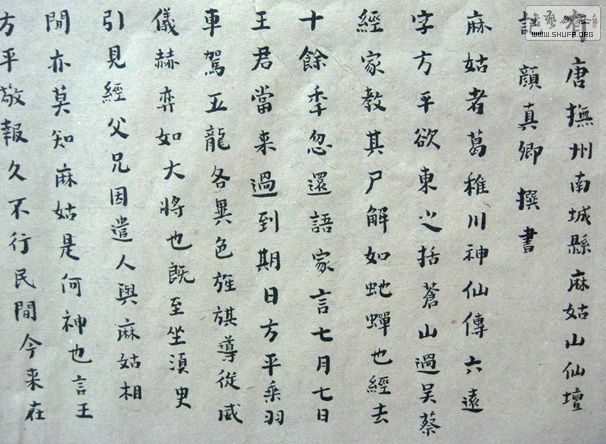 有唐撫州南城縣麻姑山仙壇
記 顏真卿 撰書
麻姑者葛稚川神仙傳六遠
字方平欲東之括蒼山過吳蔡
經家教其尸解如虵蟬也經去
十餘秊忽還語家言七月七日
王君當来過到期日方平乘羽
車駕五龍各異色旌旗導從威
儀赫弈如大將也既至坐須臾
引見經父兄因遣人與麻姑相
聞亦莫知麻姑是何神也言王
方平敬報久不行民間今来在
WWW.SHUFA.ORG